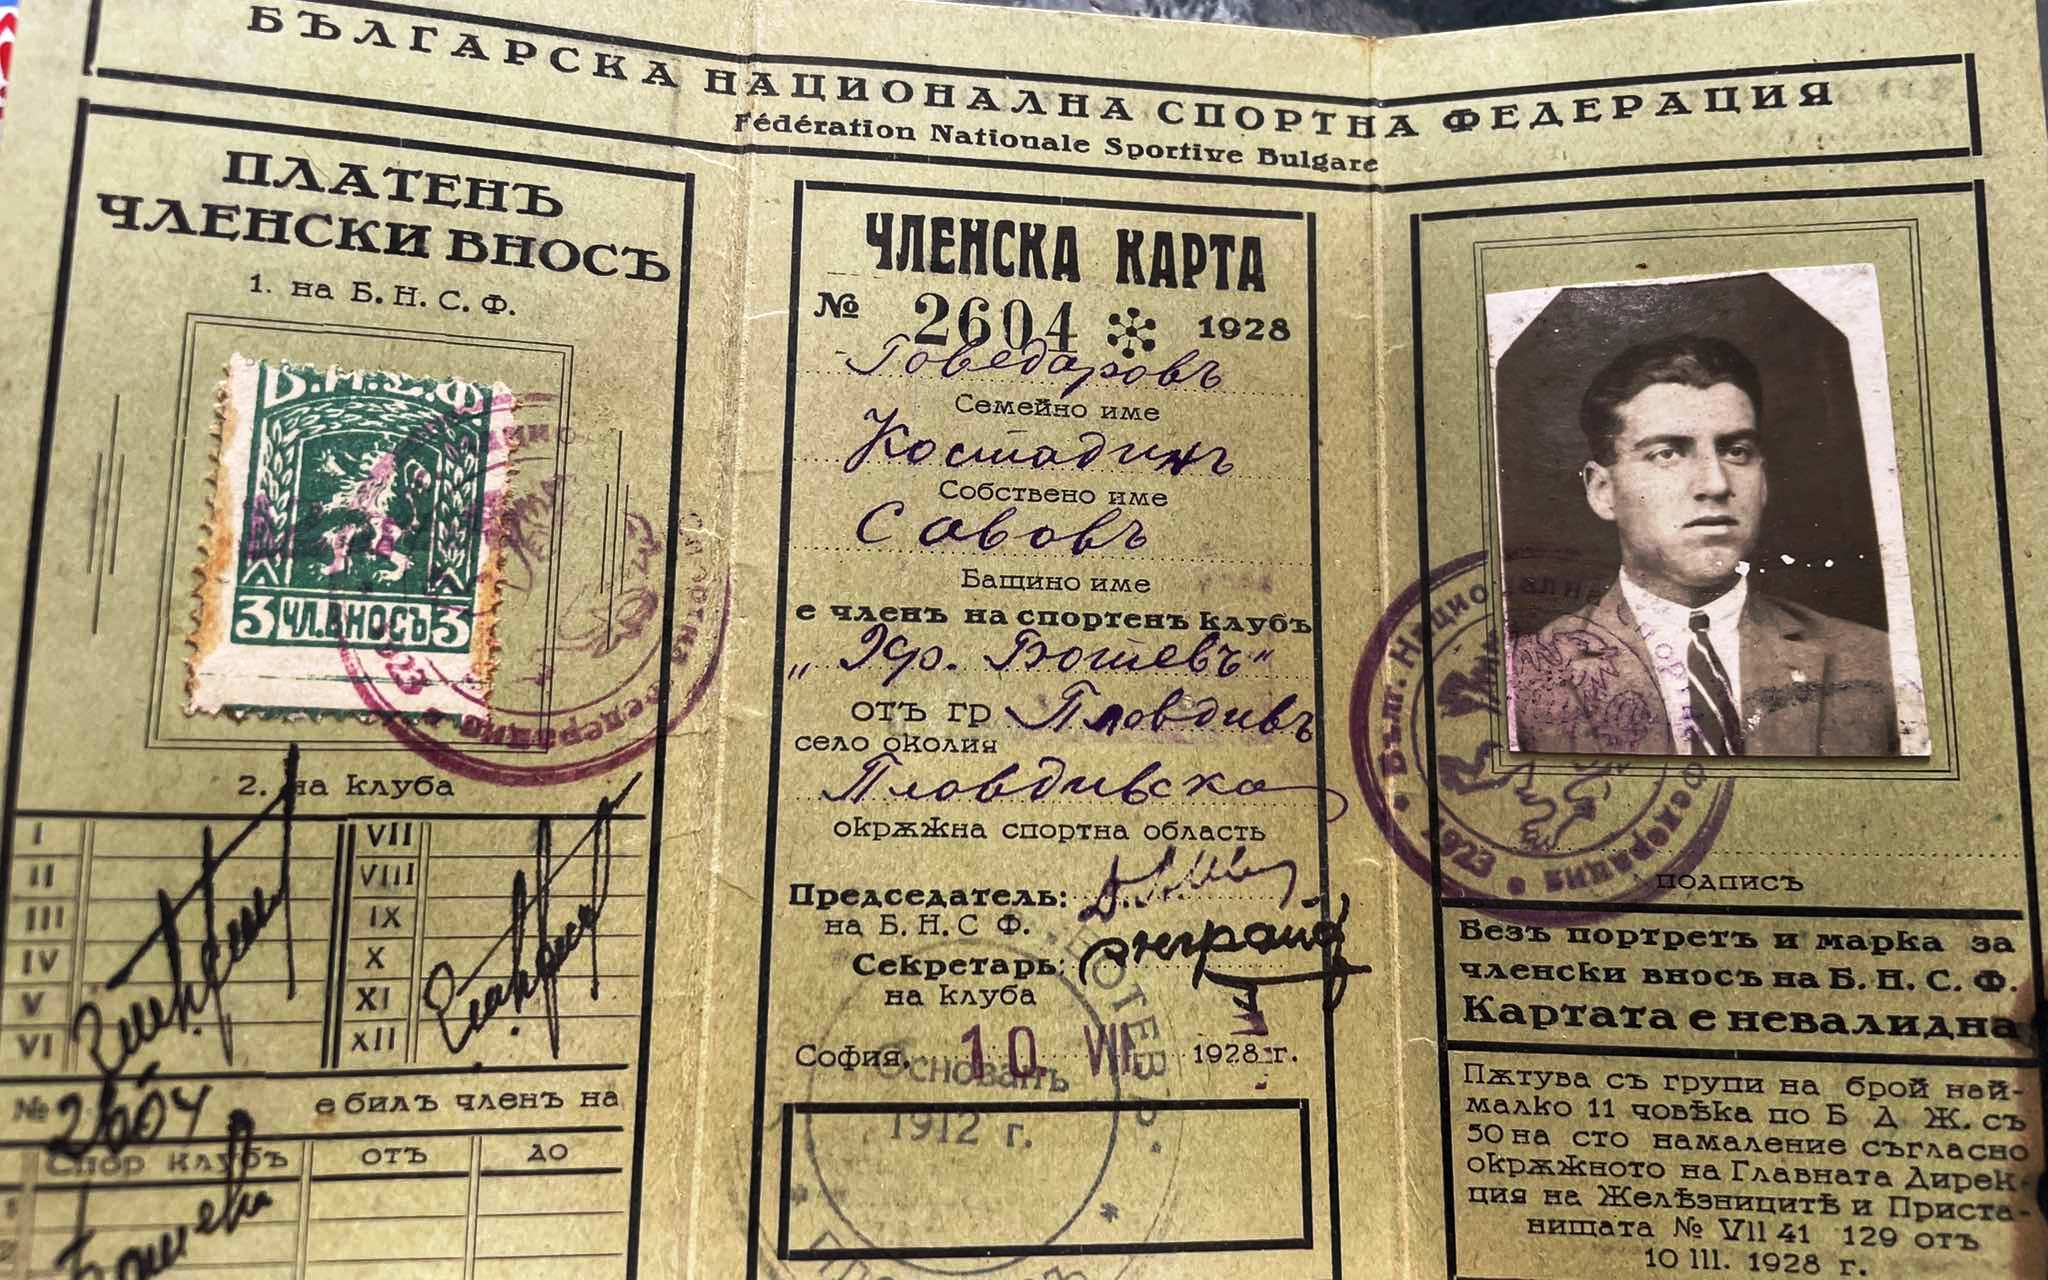 БЪЛГАРСКА НАЦИОНАЛНА СПОРТНА ФЕДЕРАЦИЯ
Fédération Nationale Sportive Bulgare
ПЛАТЕНЪ
ЧЛЕНСКИ ВНОСЪ
1. на Б. Н. С. Ф.
Б.Н.С.Ф
3 ЧЛ. ВНОСЪ 3
2. на клуба
I VII
II VIII
III IX
IV X
V XI
VI XII
№ 2604 е билъ членъ на
Спор клубъ отъ до
1
2
ЧЛЕНСКА КАРТА
№ 2604 1928
Говедаровъ
Семейно име
Костадинъ
Собствено име
Савовъ
Бащино име
е членъ на спортенъ клубъ
„Хр. Ботевъ“
отъ гр Пловдивъ
село околия
Пловдивска
окрѫжна спортна область
Председатель:
на Б. Н. С Ф.
Секретарь:
на клуба
София, 10. VII 1928 г.
БОТЕВЪ
Основанъ
1912 г.
Бълг. Национална Спортна Федерация
1923
подпись
Безъ портретъ и марка за
членски вносъ на Б. Н. С. Ф.
Картата е невалидна
Пѫтува съ групи на брой най-
малко 11 човѣка по Б Д Ж. съ
50 на сто намаление съгласно
окрѫжното на Главната Дирек-
ция на Желѣзницитѣ и Приста-
нищата № VII 41 129 отъ
10 III. 1928 г.